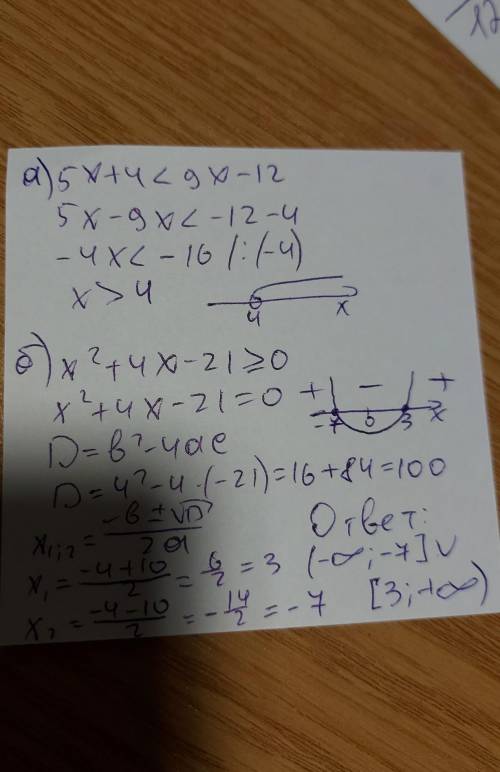 12
а) 5x+4<9x-12
5x-9x<-12-4
-4x<-16 /:(-4)
x>4
4 x
б) x²+4x-21≥0
x²+4x-21=0
+ - +
-7 0 3 x
D=в²-4ac
D=4²-4·(-21)=16+84=100
x₁;₂=(-в±√D)/2a
x₁=(-4+10)/2=6/2=3
x₂=(-4-10)/2=-14/2=-7
Ответ:
(-∞;-7]∪
[3;+∞)